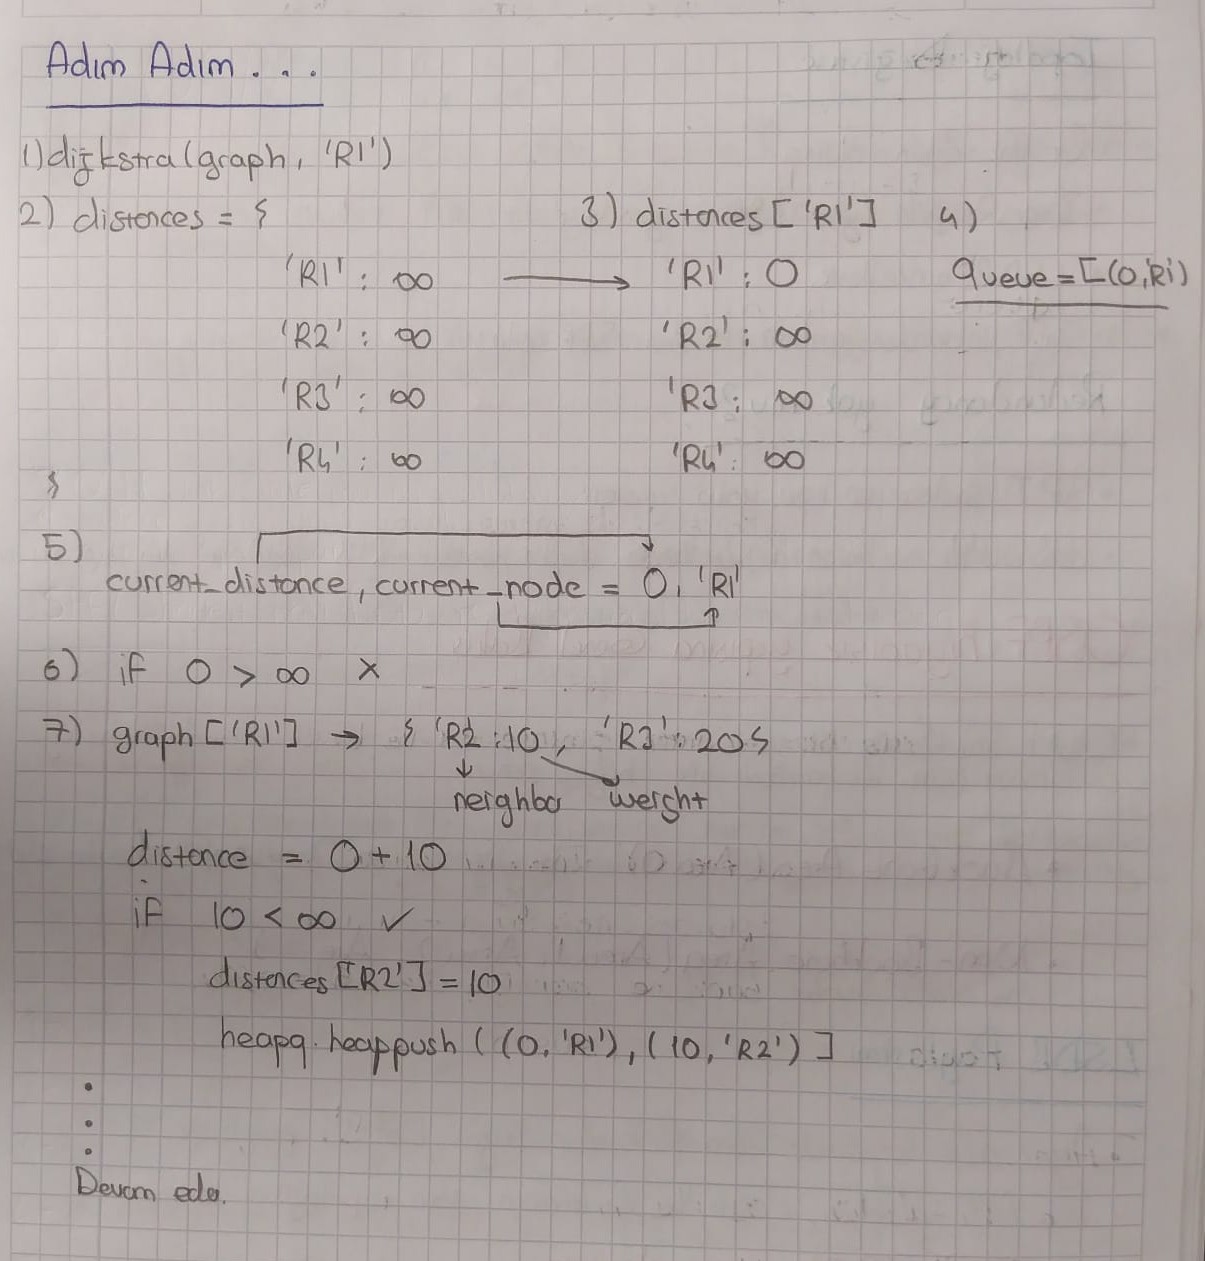 Adım Adım...
1) dijkstra(graph, 'R1')
2) distances = {
3) distances['R1']
4)
'R1' : ∞ → 'R1' : 0
Queue = [(0,'R1')
'R2' : ∞ 'R2' : ∞
'R3' : ∞ 'R3 : ∞
'R4' : ∞ 'R4' : ∞
}
5)
current_distance, current_node = 0, 'R1'
6) if 0 > ∞ X
7) graph['R1'] → { 'R2 : 10, 'R3' : 20}
neighbo weight
distance = 0 + 10
if 10 < ∞ ✓
distances[R2'] = 10
heapq.heappush((0, 'R1'), (10, 'R2')]
.
.
.
Devam eder.